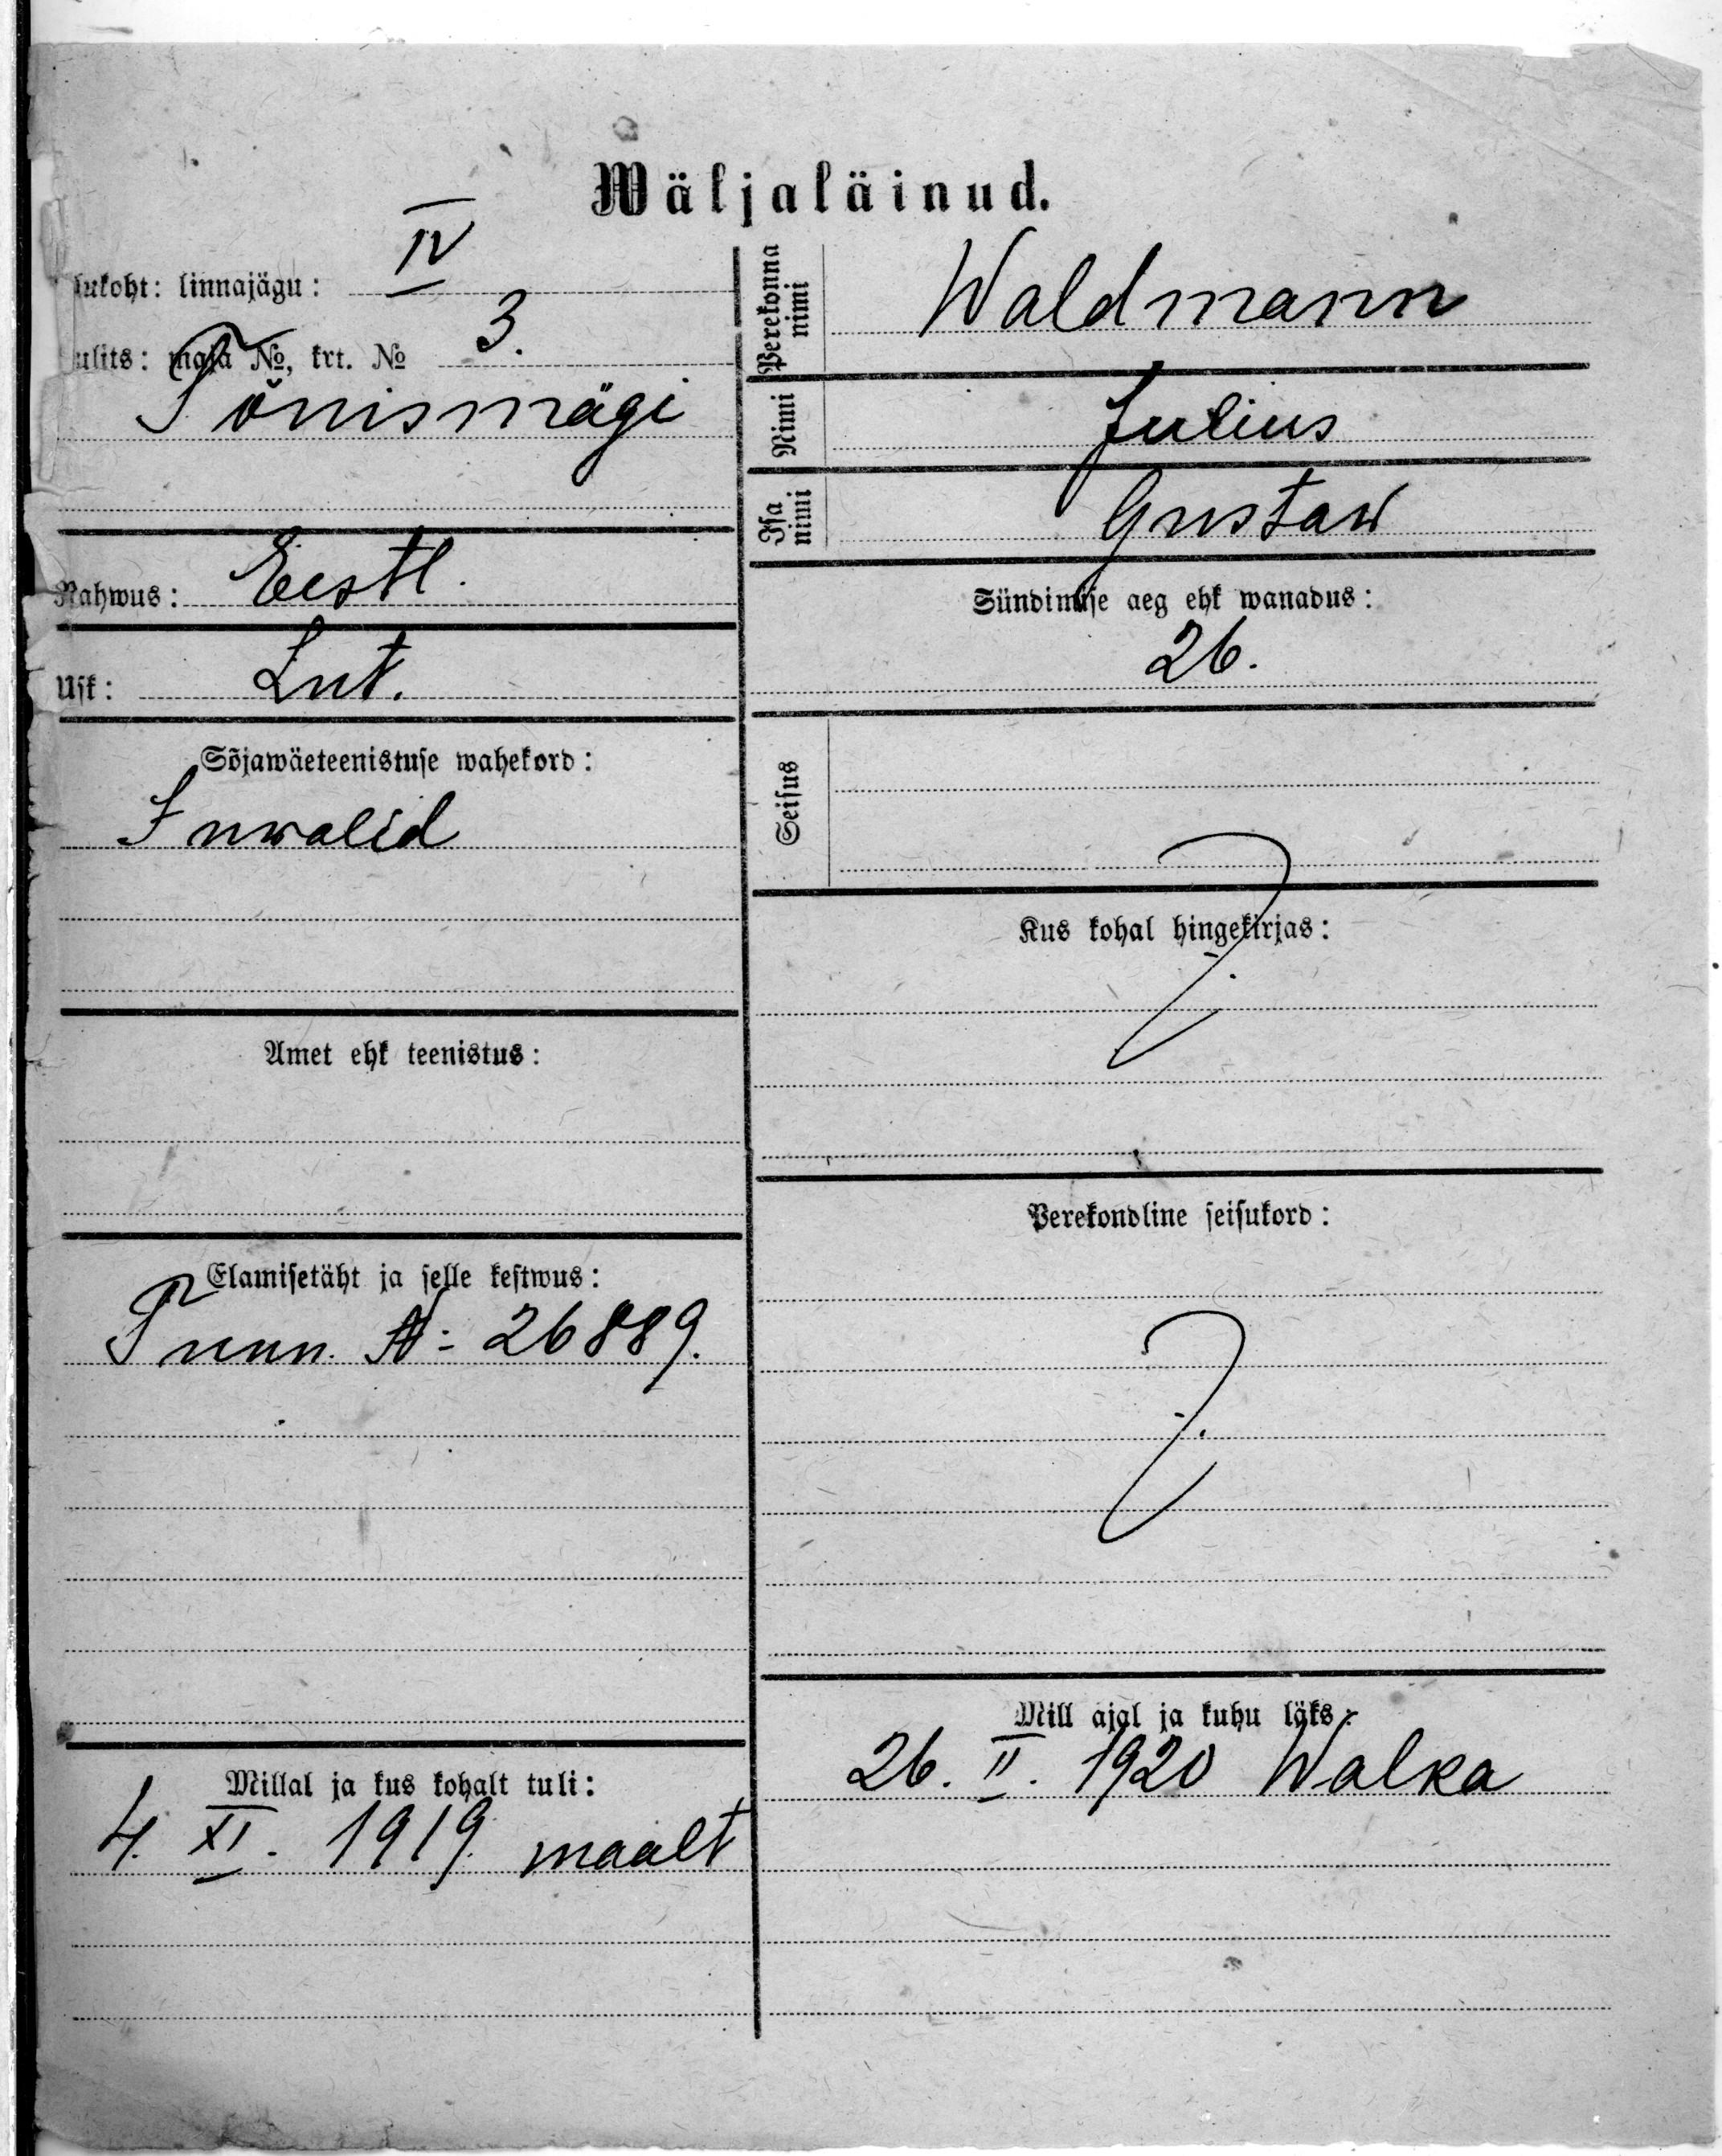 Wäljaläinud.
lukoht: linnajägu: IV
ulits: maja №, krt. № 3.
Tõnismägi
Rahwus: Eestl.
Usk: Lut.
Sõjawäeteenistuse wahekord:
Inwalid
Amet ehk teenistus:
Elamisetäht ja selle kestwus:
Tunn. №: 26889.
Millal ja kus kohalt tuli:
4. XI. 1919. maalt
Perekonna nimi Waldmann
Nimi Julius
Isa nimi Gustaw
Sündimise aeg ehk wanadus:
26.
Seisus
Kus kohal hingekirjas:
?
Perekondline seisukord:
?
Mill ajal ja kuhu läks:
26. II. 1920 Walka